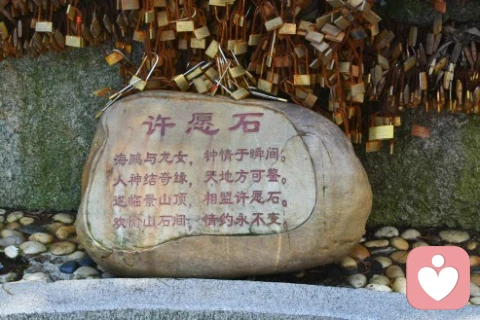 许愿石
海鹏与龙女，钟情于瞬间。
人神结奇缘，天地方可鉴。
返临景山顶，相盟许愿石。
欢愉山石间，情约永不变。